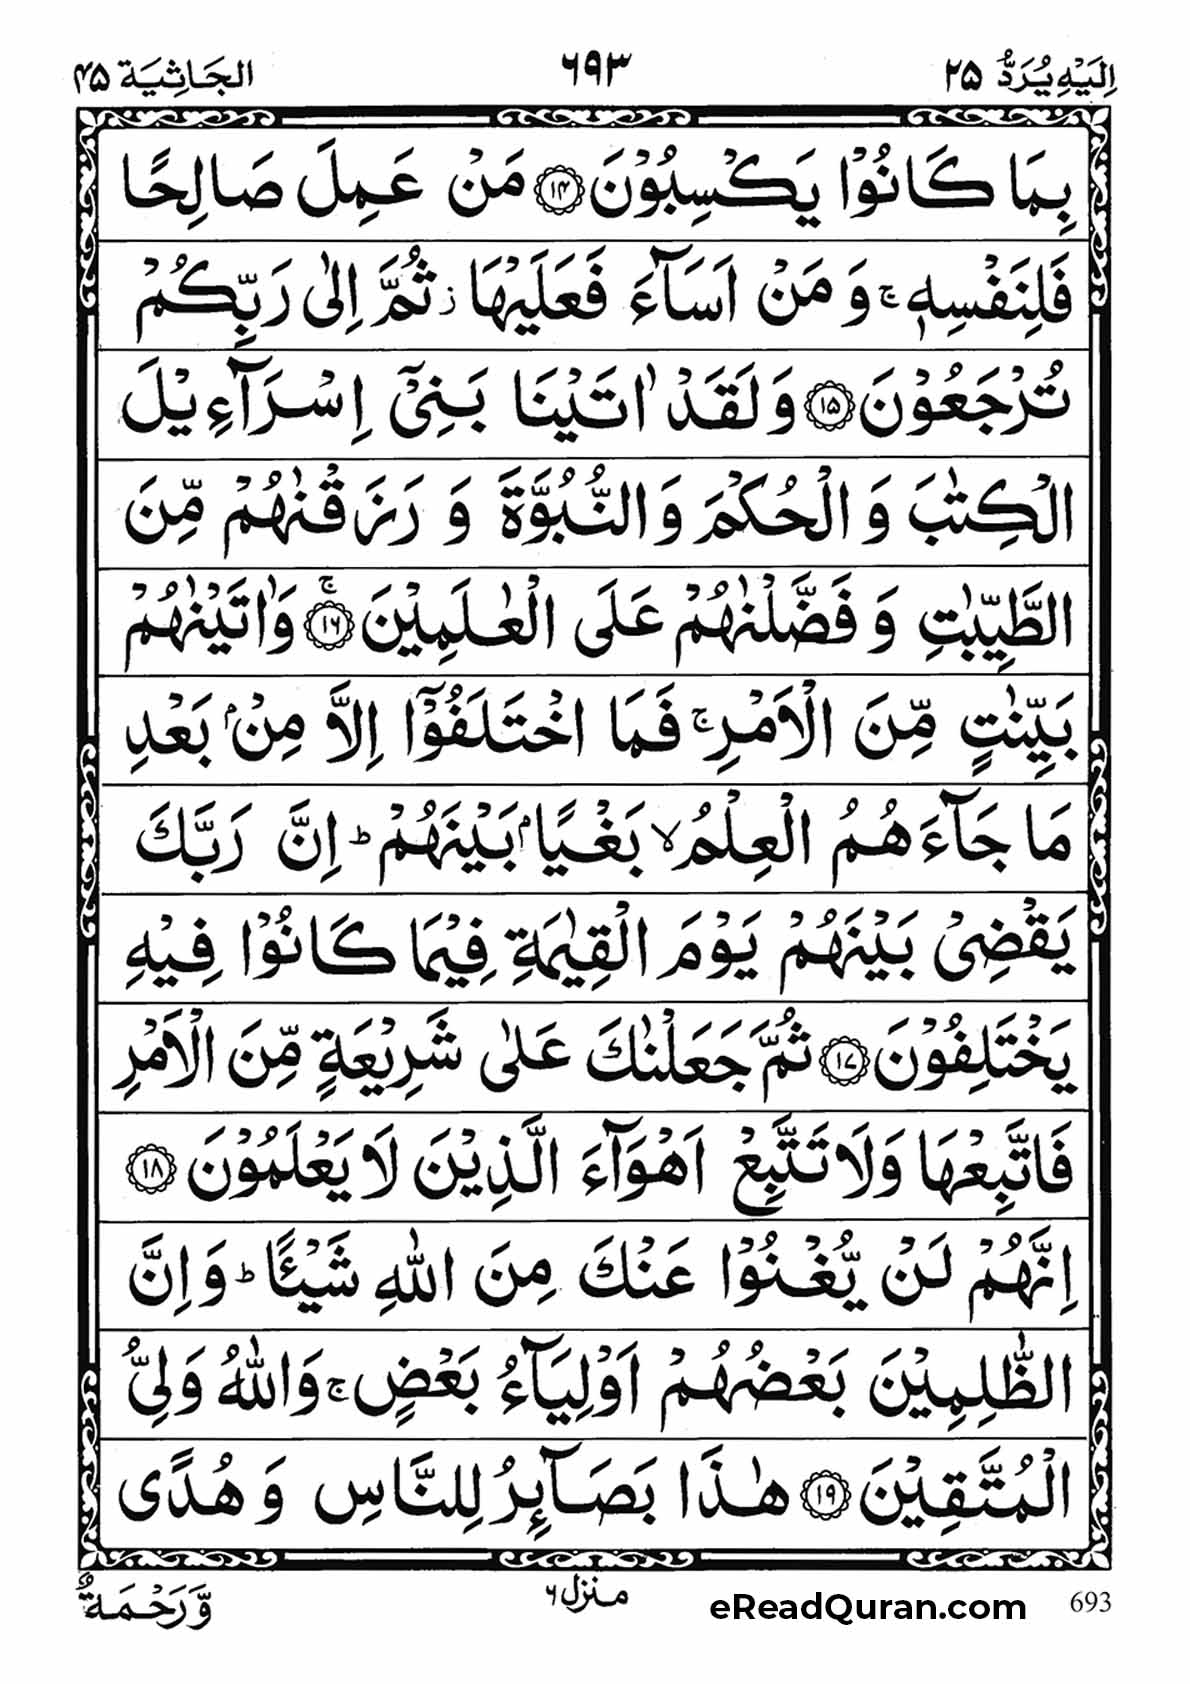 اِلَیْهِ یُرَدُّ ۲۵ ۶۹۳ الجَاثِیَة ۴۵
بِمَا كَانُوْا یَكْسِبُوْنَ ۱۴ مَنْ عَمِلَ صَالِحًا
فَلِنَفْسِهٖ ۚ وَ مَنْ اَسَآءَ فَعَلَیْهَا ؗ ثُمَّ اِلٰى رَبِّكُمْ
تُرْجَعُوْنَ ۱۵ وَ لَقَدْ اٰتَیْنَا بَنِیْۤ اِسْرَآءِیْلَ
الْكِتٰبَ وَ الْحُكْمَ وَ النُّبُوَّةَ وَ رَزَقْنٰهُمْ مِّنَ
الطَّیِّبٰتِ وَ فَضَّلْنٰهُمْ عَلَى الْعٰلَمِیْنَ ۱۶ ۚ وَ اٰتَیْنٰهُمْ
بَیِّنٰتٍ مِّنَ الْاَمْرِ ۚ فَمَا اخْتَلَفُوْۤا اِلَّا مِنْۢ بَعْدِ
مَا جَآءَهُمُ الْعِلْمُ ۙ بَغْیًۢا بَیْنَهُمْ ؕ اِنَّ رَبَّكَ
یَقْضِیْ بَیْنَهُمْ یَوْمَ الْقِیٰمَةِ فِیْمَا كَانُوْا فِیْهِ
یَخْتَلِفُوْنَ ۱۷ ثُمَّ جَعَلْنٰكَ عَلٰى شَرِیْعَةٍ مِّنَ الْاَمْرِ
فَاتَّبِعْهَا وَ لَا تَتَّبِعْ اَهْوَآءَ الَّذِیْنَ لَا یَعْلَمُوْنَ ۱۸
اِنَّهُمْ لَنْ یُّغْنُوْا عَنْكَ مِنَ اللّٰهِ شَیْـًٔا ؕ وَ اِنَّ
الظّٰلِمِیْنَ بَعْضُهُمْ اَوْلِیَآءُ بَعْضٍ ۚ وَ اللّٰهُ وَلِیُّ
الْمُتَّقِیْنَ ۱۹ هٰذَا بَصَآىِٕرُ لِلنَّاسِ وَ هُدًى
وَّ رَحْمَةٌ منزل ۶ eReadQuran.com 693